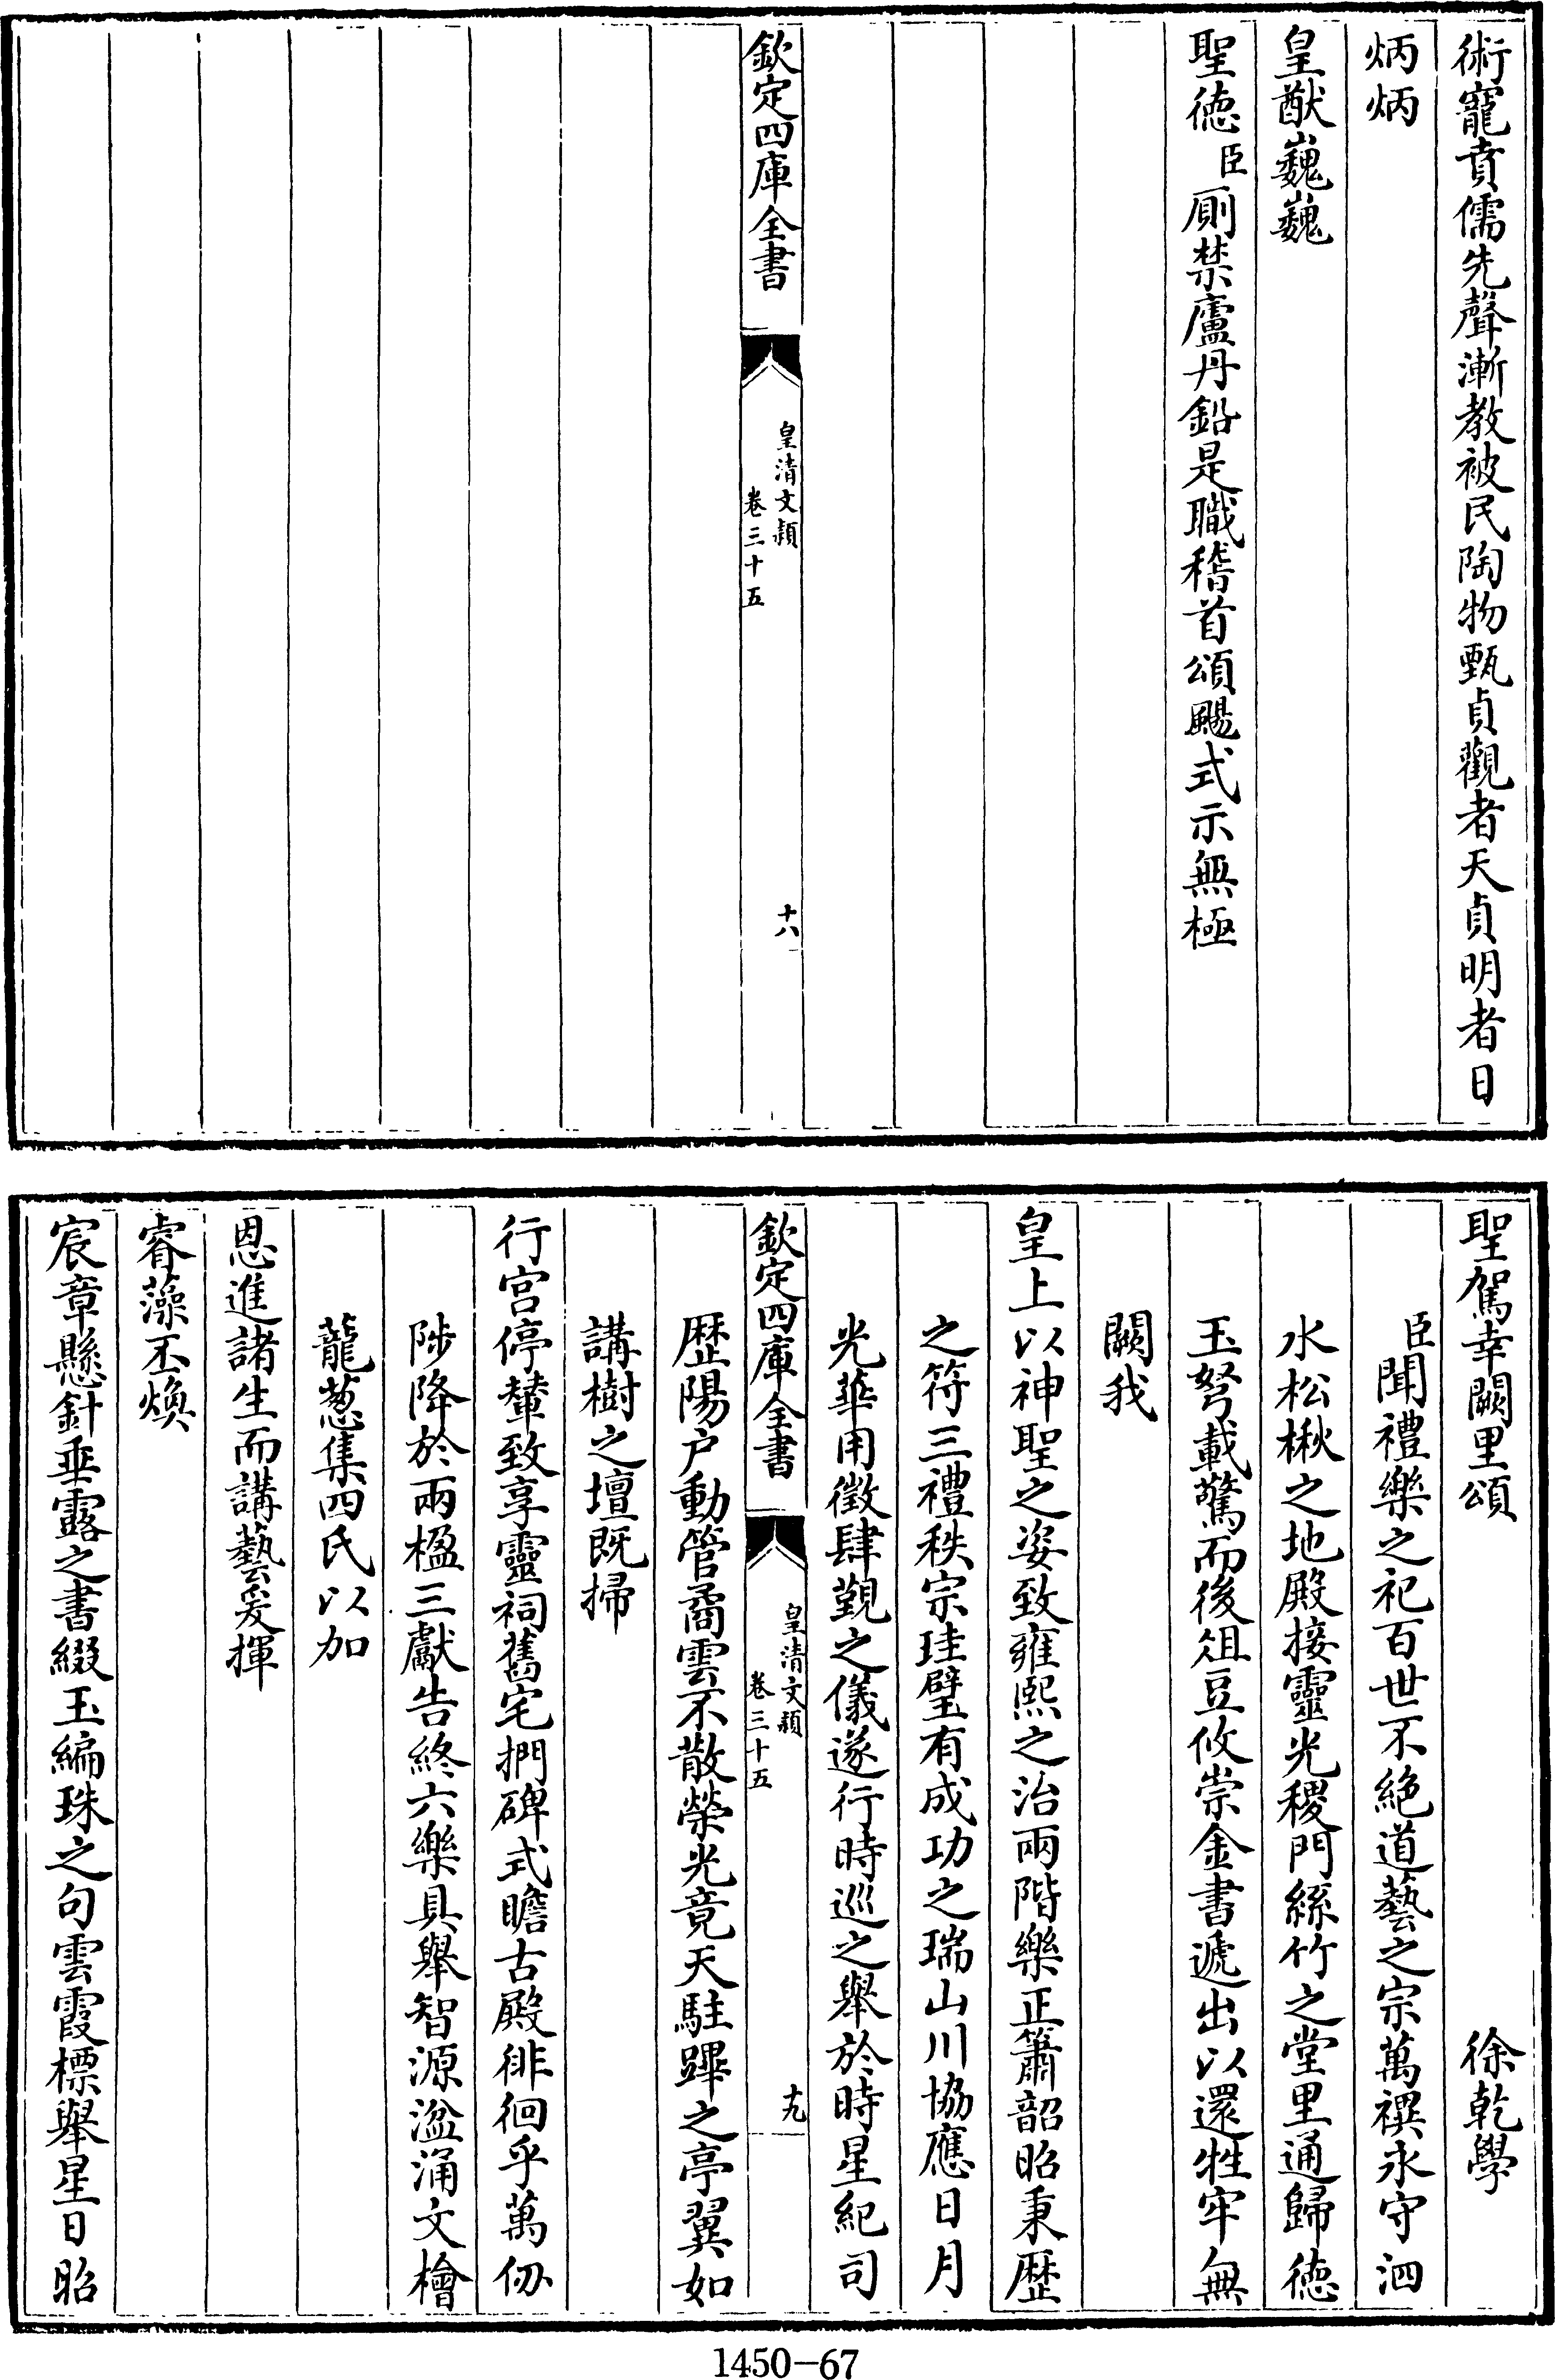 術寵賁儒先聲漸教被民陶物甄貞觀者天貞明者日
炳炳
皇猷巍巍
聖德臣厠禁廬丹鉛是職稽首頌颺式示無極
欽定四庫全書
皇清文頴
卷三十五
十八
聖駕幸闕里頌 徐乾學
臣聞禮樂之祀百世不絶道藝之宗萬禩永守泗
水松楸之地殿接靈光稷門絲竹之堂里通歸德
玉弩載驚而後俎豆攸崇金書遞出以還牲牢無
闕我
皇上以神聖之姿致雍熙之治兩階樂正簫韶昭秉歴
之符三禮秩宗珪璧有成功之瑞山川協應日月
光華用徵肆覲之儀遂行時巡之舉於時星紀司
欽定四庫全書
皇清文頴
卷三十五
十九
歴陽户動管矞雲不散榮光竟天駐蹕之亭翼如
講樹之壇既掃
行宫停輦致享靈祠舊宅捫碑式瞻古殿徘徊乎萬仞
陟降於兩楹三獻告終六樂具舉智源湓涌文檜
蘢葱集四氏以加
恩進諸生而講藝爰揮
睿藻丕煥
宸章懸針垂露之書綴玉編珠之句雲霞標舉星日昭
1450-67